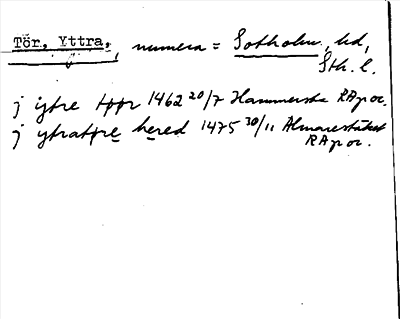 Tör, Yttra, numera = Sotholm, hd,
Sth. l.
j ytre tppr 1462 20/7 Hammersta RAp or.
j ytratpre hered 1475 30/11 Almarestäket
RAp or.